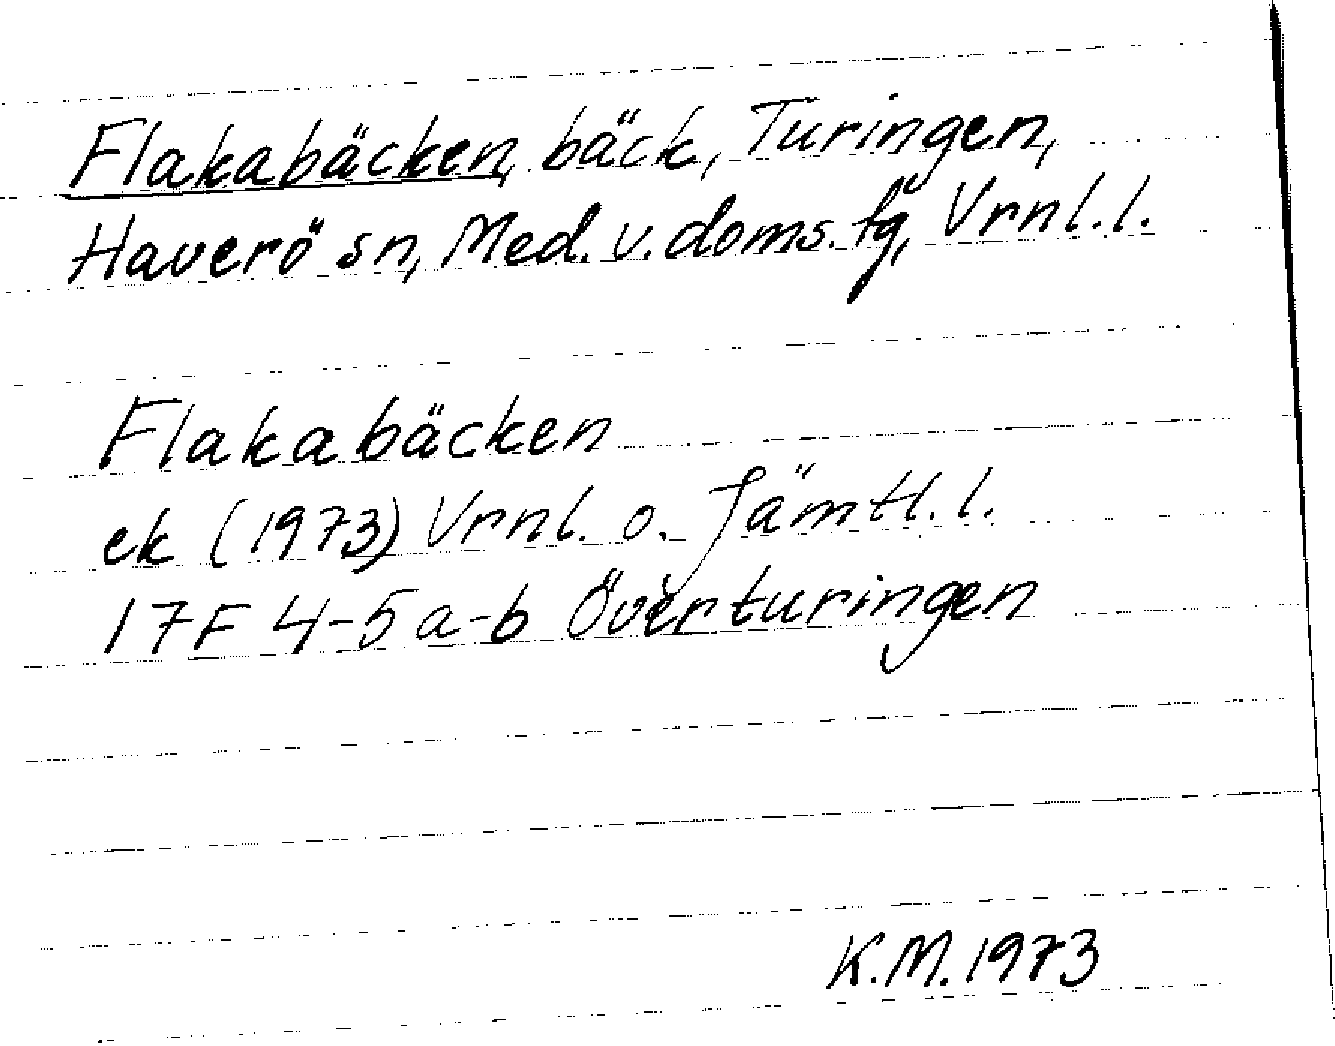 Flakabäcken, bäck, Turingen,
Haverö sn, Med. v. doms. fg, Vrnl. l.
Flakabäcken
ek (1973) Vrnl. o. Jämtl. l.
17F 4-5 a-b Överturingen
K.M. 1973